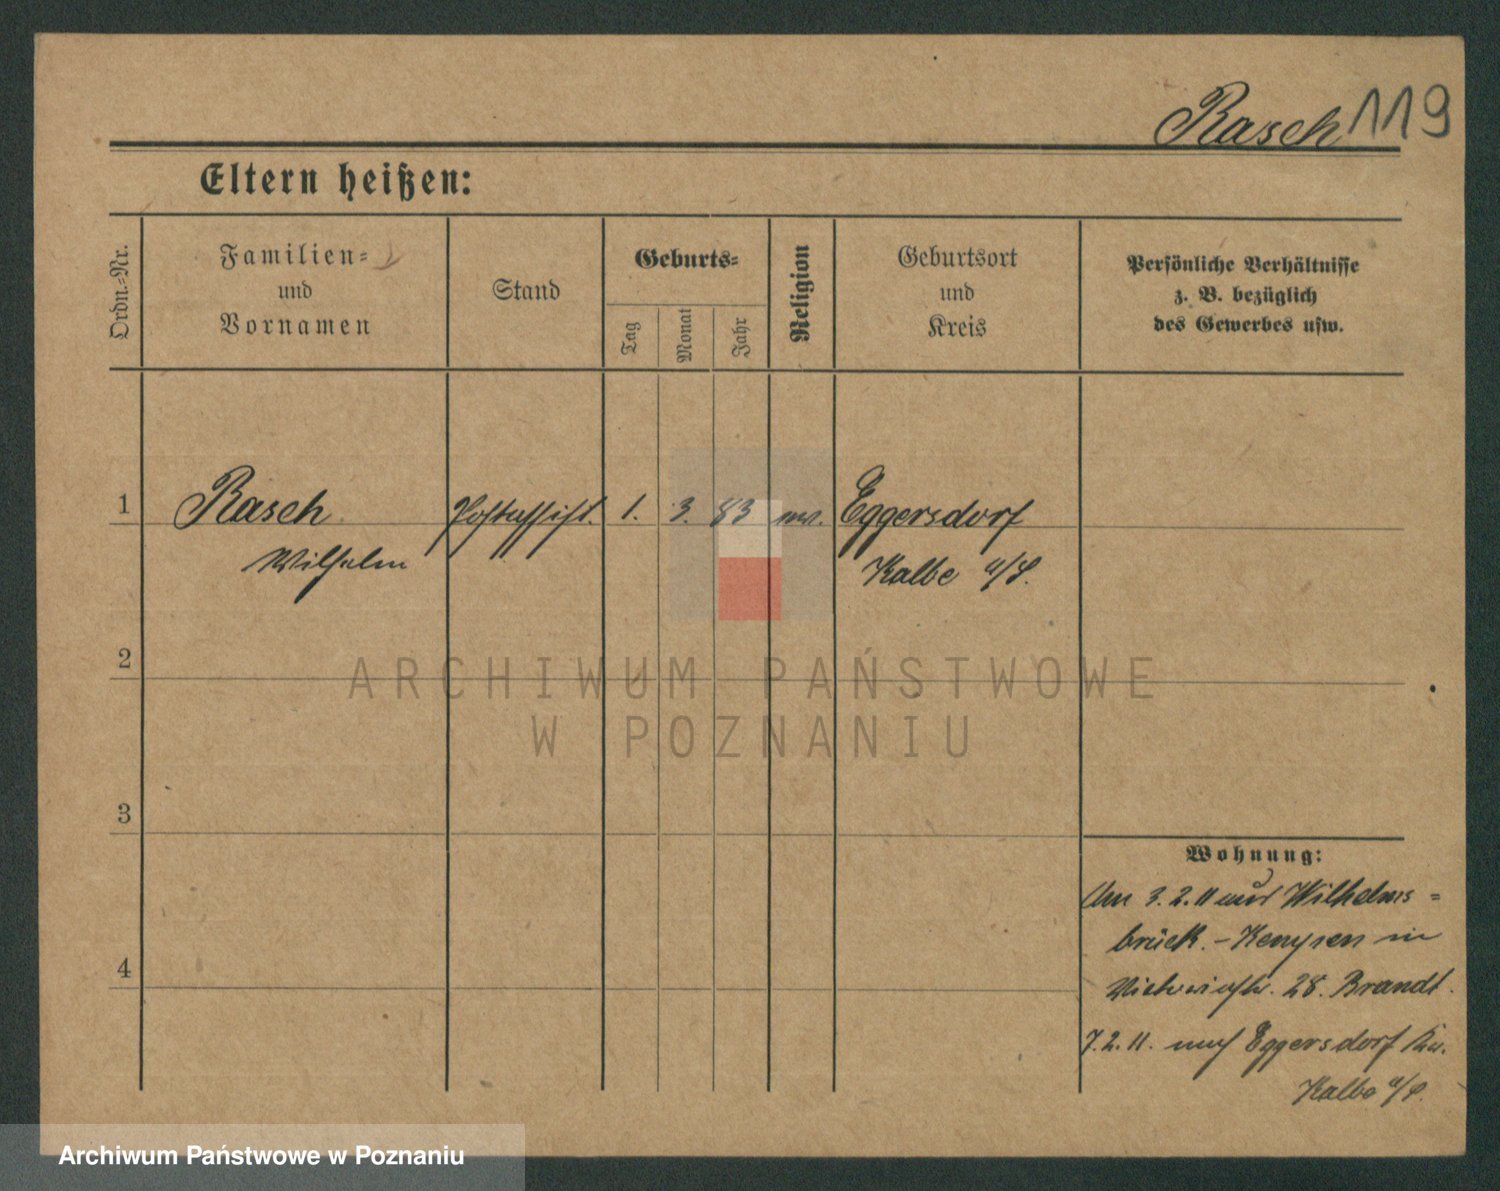 Rasch 119
Eltern heißen:
Ordn.-Nr.
Familien-
und
Vornamen
Stand
Geburts-
Tag
Monat
Jahr
Religion
Geburtsort
und
Kreis
Persönliche Verhältnisse
z. B. bezüglich
des Gewerbes usw.
1 Rasch Postassist. 1. 3. 83 Eggersdorf
Wilhelm Kalbe a/S.
2
ARCHIWUM PAŃSTWOWE
W POZNANIU
3
Wohnung:
Am 3.2.11 aus Wilhelms-
brück.-Kempen in
Victoriastr. 28. Brandt.
4
7.2.11. nach Eggersdorf Kr.
Kalbe a/S.
Archiwum Państwowe w Poznaniu